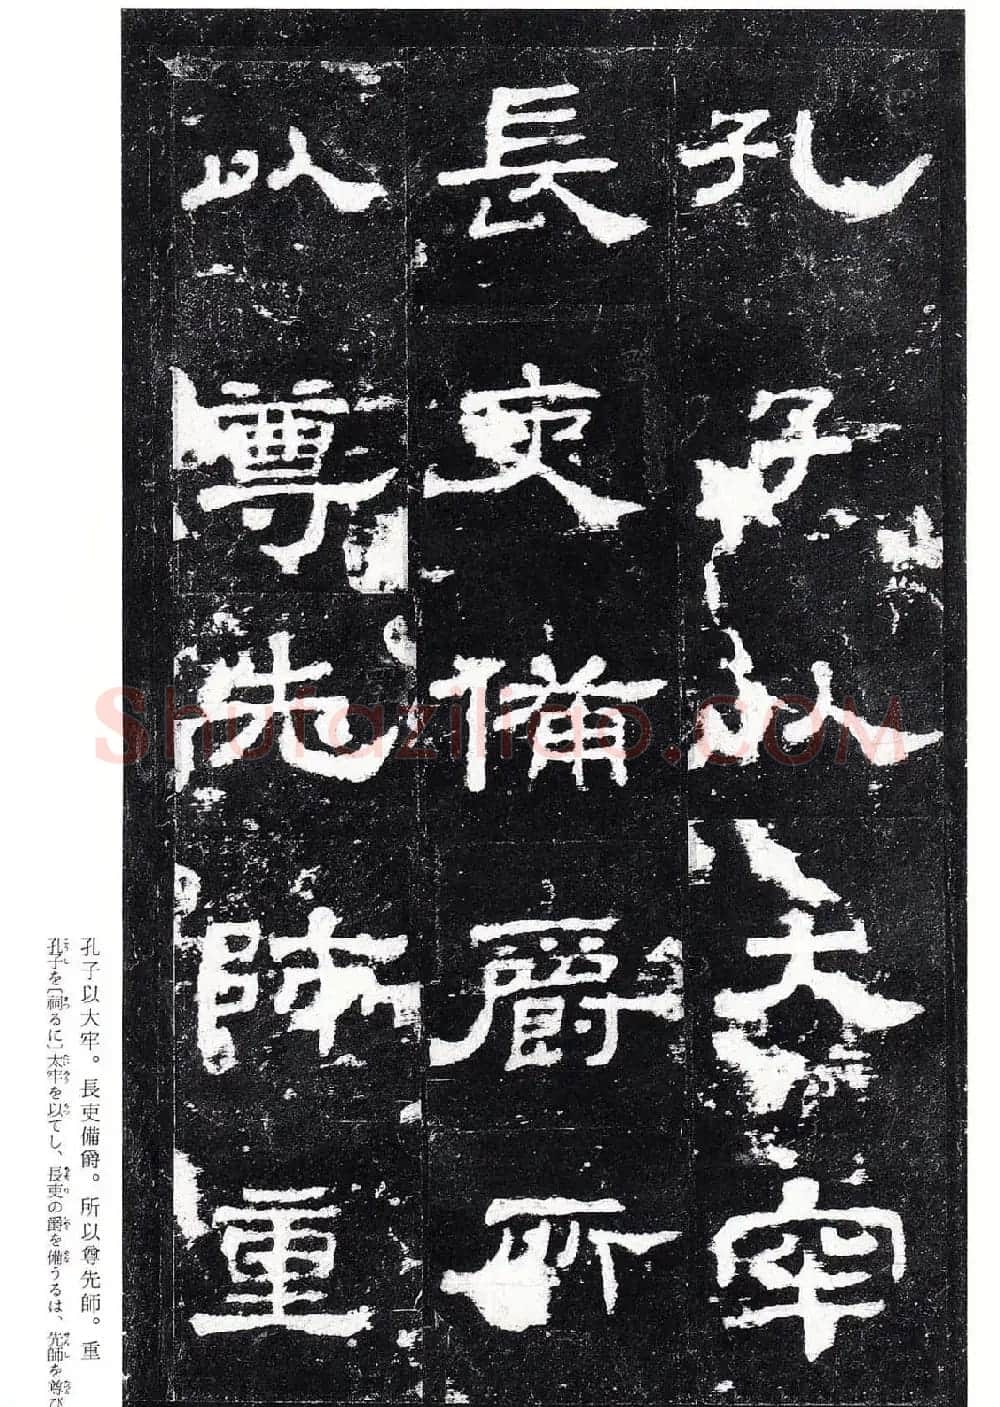 孔子以大牢
長吏備爵所
以尊先師重
孔子以大牢。長吏備爵。所以尊先師。重
孔子を〔祠るに〕太牢を以てし、長吏の爵を備うるは、先師を尊び
Shufaziliao.COM